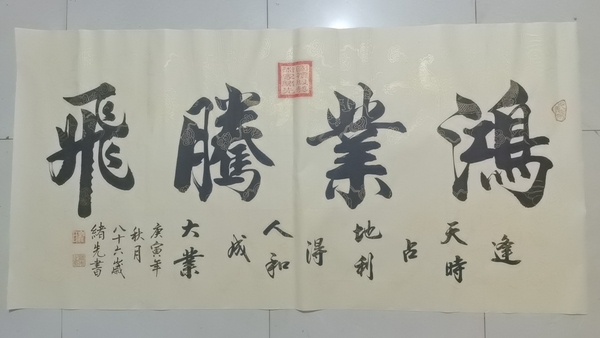 鴻業騰飛
逢
天時
占
地利
得
人和
成
大業
庚寅年
秋月
八十六歲
緒先書